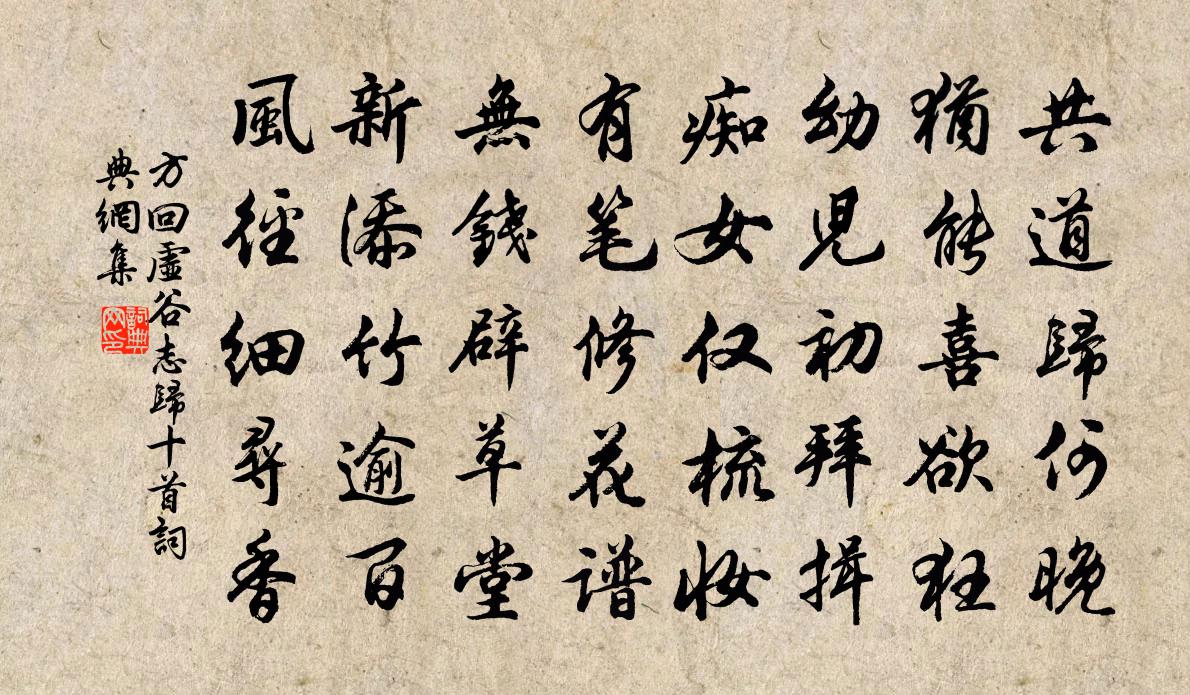 共道歸何晚
猶能喜欲狂
幼児初拜揖
痴女仅梳妝
有笔修花谱
無錢辟草堂
新添竹逾百
風徑細尋香
方回虛谷志歸十首詞
典網集
詞典
网印